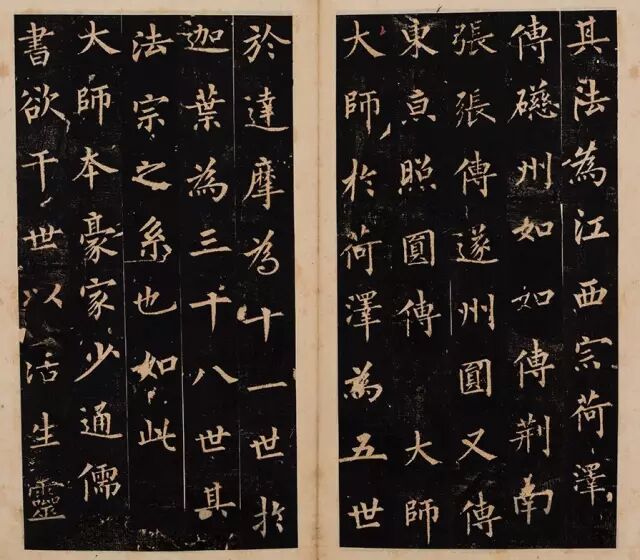 其法為江西宗荷澤
傳磁州如如傳荊南
張張傳遂州圓又傳
東亰照圓傳　大師
大師於荷澤為五世
於達摩為十一世於
迦葉為三十八世其
法宗之系也如此
大師本豪家少通儒
書欲干世以活生靈